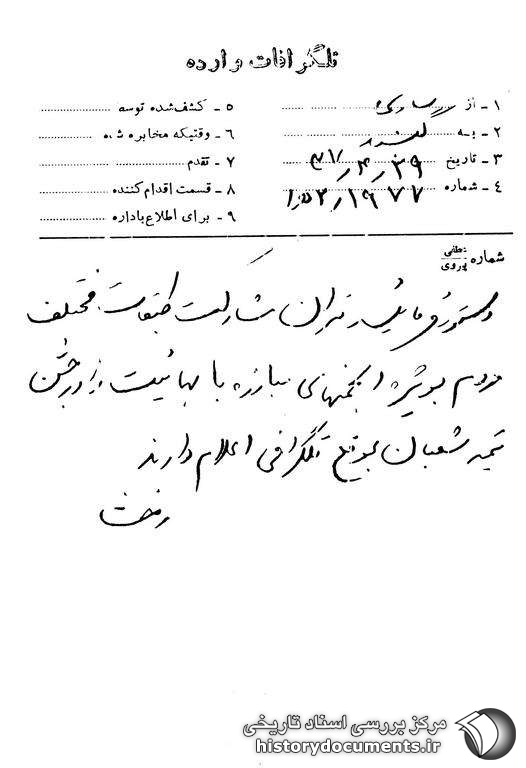 تلگرافات وارده
۱ - از ساری
۲ - به
۳ - تاریخ ۲۹ر۴ر
۴ - شماره
۵ - کشف شده توسط
۶ - وقتیکه مخابره شده
۷ - تقدم
۸ - قسمت اقدام کننده
۹ - برای اطلاع باداره
شماره عطفی پیروی
دستور فرمائید میزان شرکت طبقات مختلف
مردم بویژه انجمنهای مبارزه با بهائیت را در جشن
نیمه شعبان بموقع تلگرافی اعلام دارند
مرکز بررسی اسناد تاریخی
historydocuments.ir